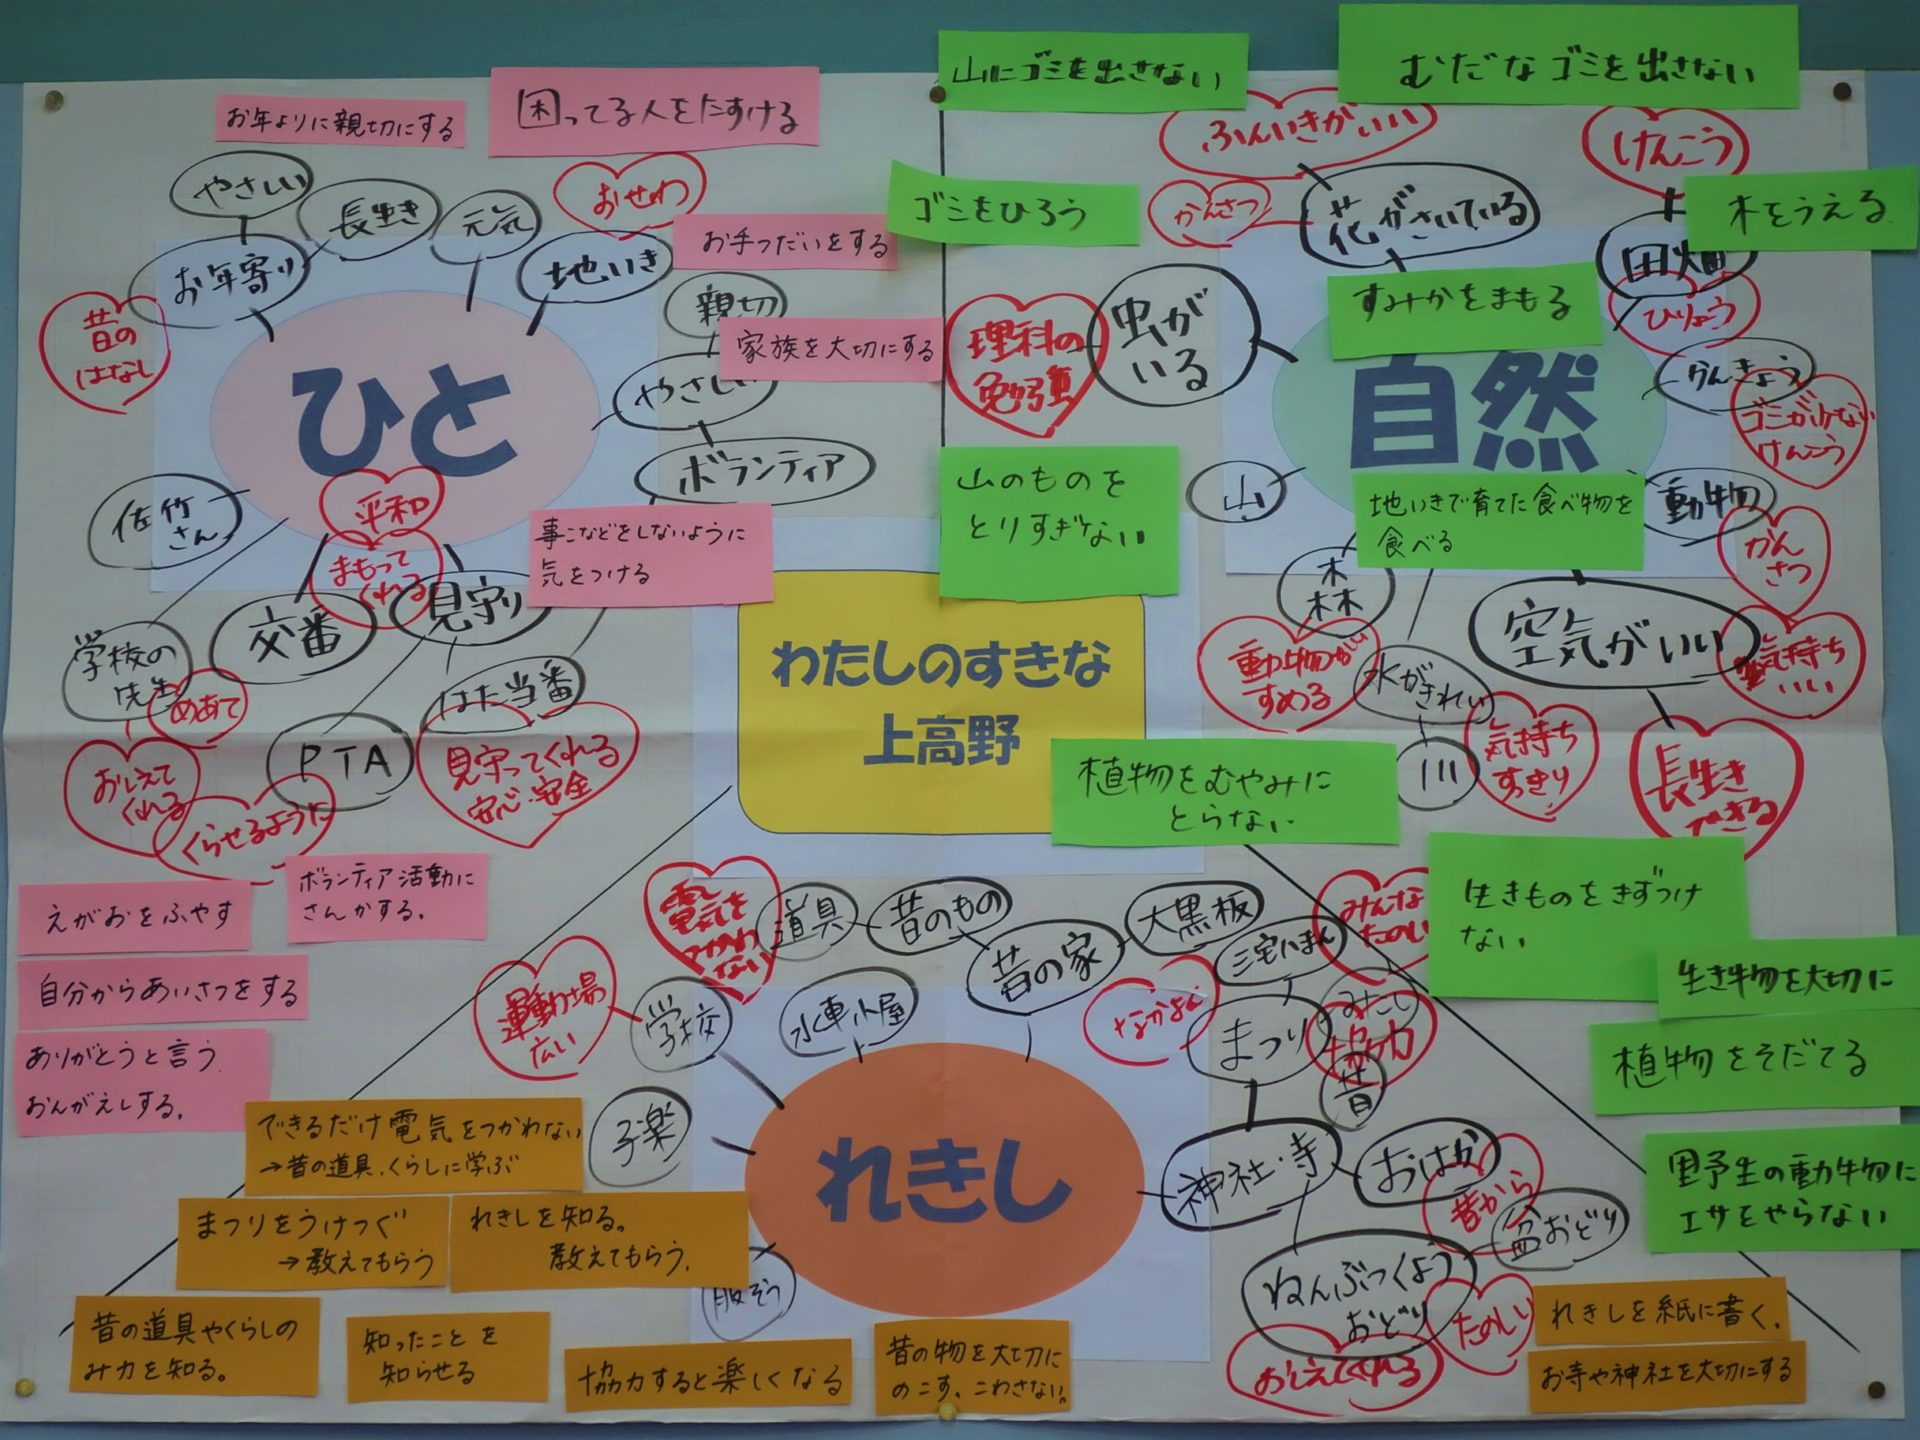 お年よりに親切にする
困ってる人をたすける
やさしい
長生き
元気
おせわ
お年寄り
地いき
お手つだいをする
昔の
はなし
ひと
親切
家族を大切にする
やさしい
ボランティア
佐竹
さん
平和
まもって
くれる
事こなどをしないように
気をつける
交番
見守り
学校の
先生
めあて
はた当番
PTA
見守ってくれる
安心・安全
おしえて
くれる
くらせるように
ボランティア活動に
さんかする。
えがおをふやす
自分からあいさつをする
ありがとうと言う
おんがえしする。
山にゴミを出さない
むだなゴミを出さない
ふんいきがいい
けんこう
ゴミをひろう
かんさつ
花がさいている
木をうえる
田畑
すみかをまもる
ひりょう
理科の
勉強
虫が
いる
自然
かんきょう
ゴミが少ない
けんこう
山のものを
とりすぎない
山
地いきで育てた食べ物を
食べる
動物
かん
さつ
森
空気がいい
気持ち
いい
動物が
すめる
水がきれい
川
気持ち
すっきり
長生き
できる
わたしのすきな
上高野
植物をむやみに
とらない
生きものをきずつけ
ない
生き物を大切に
植物をそだてる
野生の動物に
エサをやらない
電気を
つかわ
ない
道具
昔のもの
昔の家
大黒板
三宅八まん
みんな
たのしい
運動場
広い
学校
水車小屋
なかよく
まつり
みこし
協力
昔
れきし
神社・寺
おはか
昔から
盆おどり
ねんぶつくよう
おどり
たのしい
おしえてくれる
服そう
できるだけ電気をつかわない
→昔の道具、くらしに学ぶ
まつりをうけつぐ
→教えてもらう
れきしを知る。
教えてもらう。
昔の道具やくらしの
み力を知る。
知ったことを
知らせる
協力すると楽しくなる
昔の物を大切に
のこす、こわさない。
れきしを紙に書く。
お寺や神社を大切にする